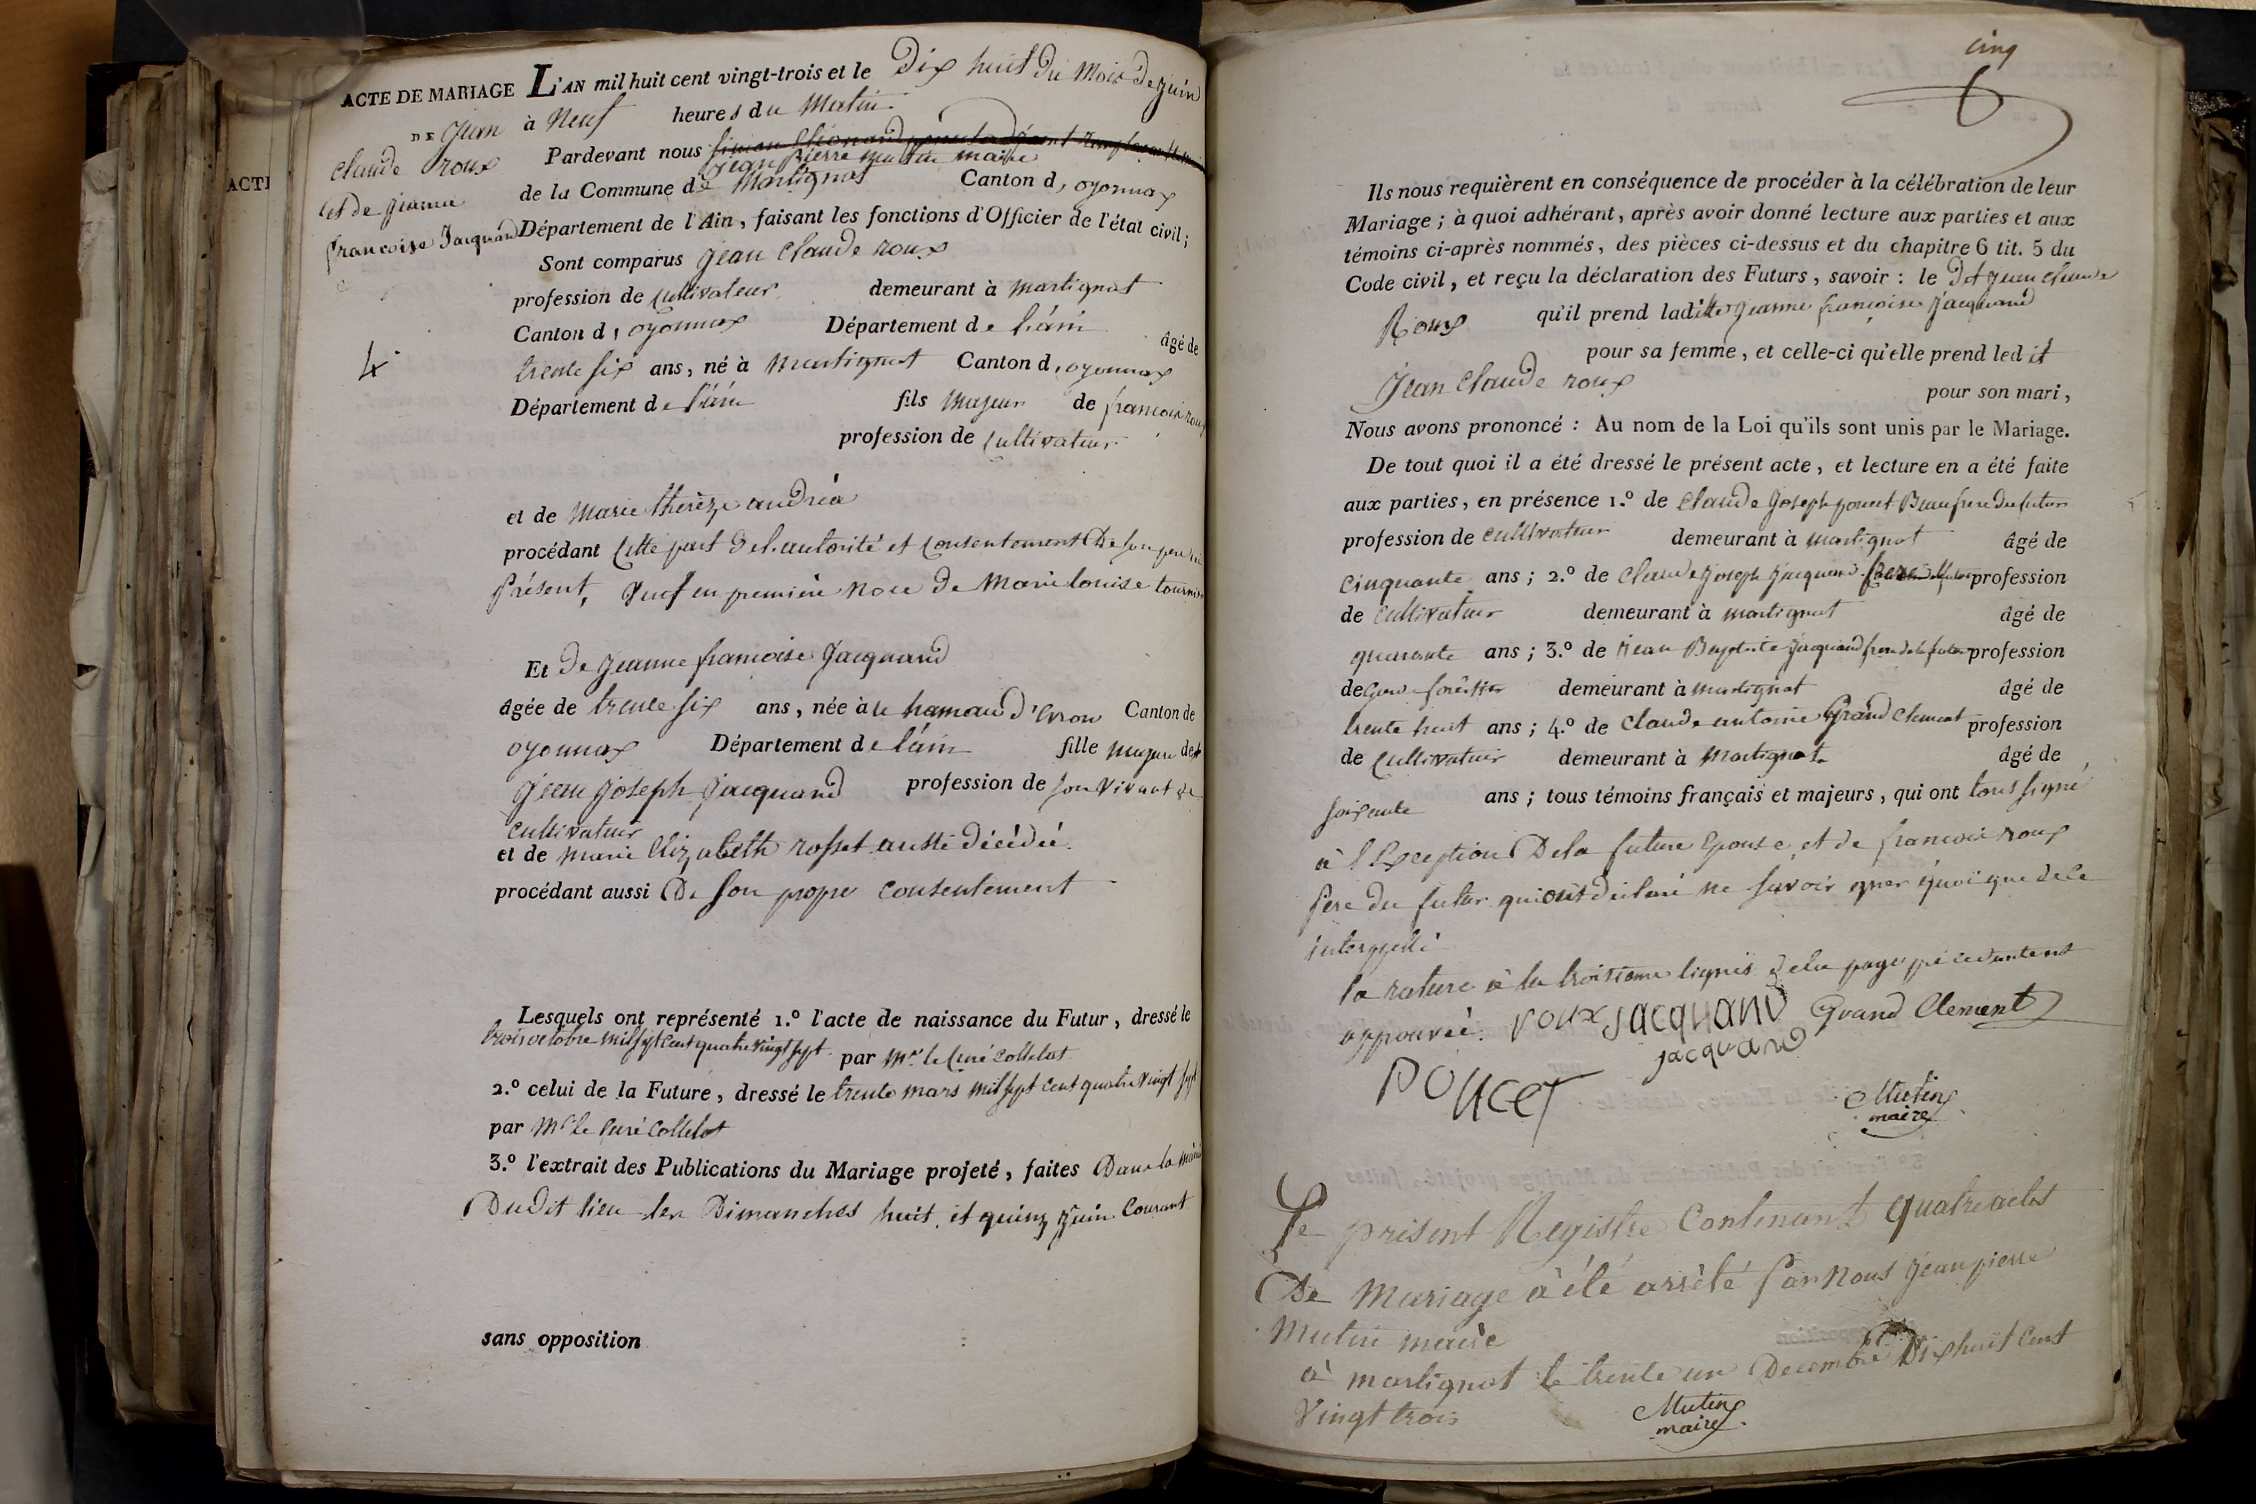 ACTE DE MARIAGE
DE Jean
Claude roux
et de jeanne
francoise Jacquand
4.
ACTE
L'AN mil huit cent vingt-trois et le Dix huit du Mois de juin
à Neuf heures du Matin
Pardevant nous
jean pierre mutin maire
de la Commune de Martignat Canton d, oyonnax
Département de l'Ain, faisant les fonctions d'Officier de l'état civil;
Sont comparus jean Claude roux
profession de Cultivateur demeurant à martignat
Canton d, oyonnax Département de l'ain âgé de
trente six ans, né à martignat Canton d, oyonnax
Département de l'ain fils majeur de francois roux
profession de Cultivateur
et de Marie therèze andréa
procédant Cette part de l'autorité et Consentement De son pere ici
Présent, Veuf en premiere noce de Marie louise
Et De jeanne francoise Jacquand
âgée de trente six ans, née à le hamau d'Evron Canton de
oyonnax Département de l'ain fille majeure de
jean joseph jacquand profession de son vivant de
cultivateur
et de marie Elizabeth rosset aussi décédée.
procédant aussi De son propre consentement
Lesquels ont représenté 1.º l'acte de naissance du Futur, dressé le
trois octobre mil sept cent quatre vingt sept par Mr. le Curé Collelat
2.º celui de la Future, dressé le trente mars mil sept cent quatre vingt sept
par Mr le Curé Collelat
3.º l'extrait des Publications du Mariage projeté, faites Dans la mairie
Dudit lieu les Dimanches huit, et quinz juin Courant
sans opposition
cinq
6
Ils nous requièrent en conséquence de procéder à la célébration de leur
Mariage; à quoi adhérant, après avoir donné lecture aux parties et aux
témoins ci-après nommés, des pièces ci-dessus et du chapitre 6 tit. 5 du
Code civil, et reçu la déclaration des Futurs, savoir: le Dit jean Claude
Roux qu'il prend laditte jeanne françoise jacquand
pour sa femme, et celle-ci qu'elle prend ledit
Jean Claude roux pour son mari,
Nous avons prononcé: Au nom de la Loi qu'ils sont unis par le Mariage.
De tout quoi il a été dressé le présent acte, et lecture en a été faite
aux parties, en présence 1.º de Claude Joseph poncet Beau frere du futur
profession de Cultivateur demeurant à martignat âgé de
Cinquante ans; 2.º de Claude Joseph Jacquand frere profession
de Cultivateur demeurant à martignat âgé de
quarante ans; 3.º de jean Baptiste jacquand frere de la future profession
de garde forêstier demeurant à martignat âgé de
trente huit ans; 4.º de Claude antoine Grand Clement profession
de Cultivateur demeurant à Martignat âgé de
soixante ans; tous témoins français et majeurs, qui ont tous signé
à l'Exception De la future Epouse et de francois roux
Pere du futur qui ont déclaré ne savoir quoique de ce
interppellé
la rature à la troisieme lignes de la page précédante est
approuvée. roux jacquand Grand Clement
jacquand
PONCET
Mutin
maire
Le présent Registre Contenant quatre actes
De Mariage à été arrêté Par Nous jean pierre
Mutin maire
à martignat le trente un Decembre Dix huit Cent
Vingt trois
Mutin
maire